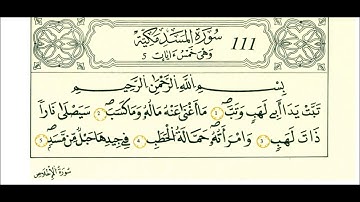 سُورَةُ الْمَسَدِ مَكِّيَّةٌ 111
وَهِيَ خَمْسُ ءَايَاتٍ 5
بِسْمِ اللَّهِ الرَّحْمَٰنِ الرَّحِيمِ
تَبَّتْ يَدَا أَبِي لَهَبٍ وَتَبَّ ۝ مَا أَغْنَىٰ عَنْهُ مَالُهُ وَمَا كَسَبَ ۝ سَيَصْلَىٰ نَارًا
ذَاتَ لَهَبٍ ۝ وَامْرَأَتُهُ حَمَّالَةُ الْحَطَبِ ۝ فِي جِيدِهَا حَبْلٌ مِّن مَّسَدٍ ۝
سُورَةُ الْإِخْلَاصِ